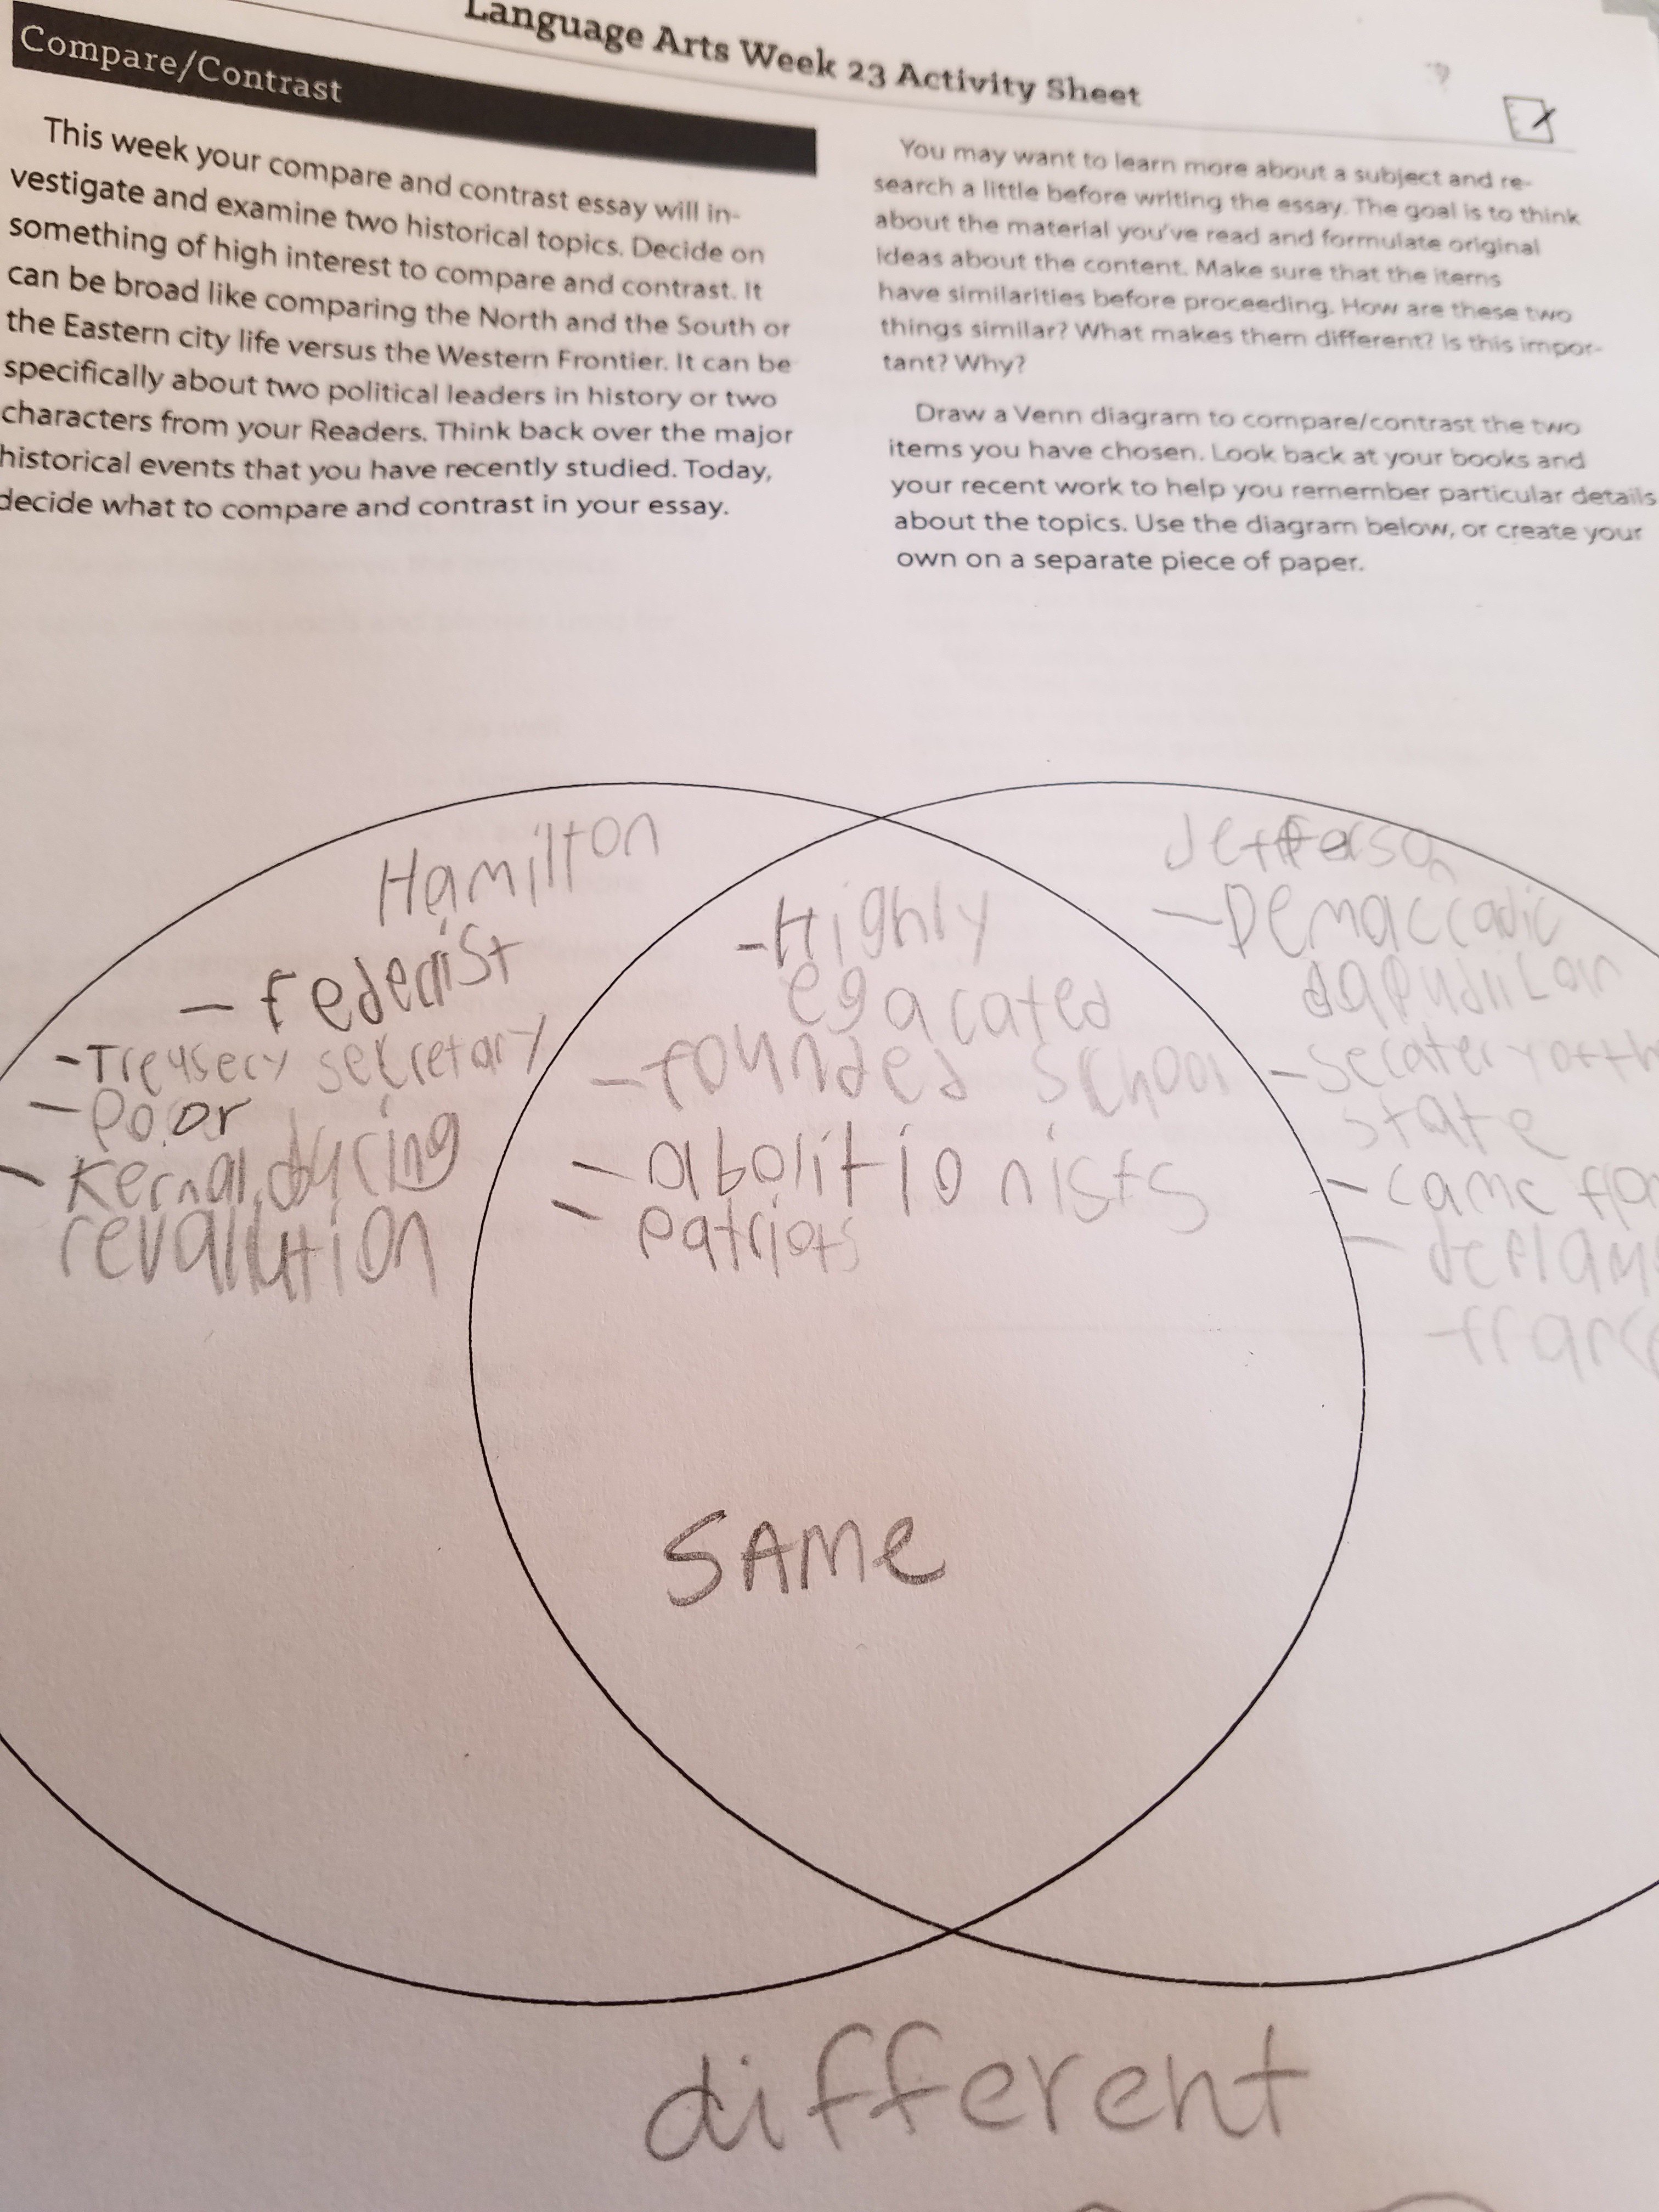 Language Arts Week 23 Activity Sheet
Compare/Contrast
This week your compare and contrast essay will in-
vestigate and examine two historical topics. Decide on
something of high interest to compare and contrast. It
can be broad like comparing the North and the South or
the Eastern city life versus the Western Frontier. It can be
specifically about two political leaders in history or two
characters from your Readers. Think back over the major
historical events that you have recently studied. Today,
decide what to compare and contrast in your essay.
You may want to learn more about a subject and re-
search a little before writing the essay. The goal is to think
about the material you've read and formulate original
ideas about the content. Make sure that the items
have similarities before proceeding. How are these two
things similar? What makes them different? Is this impor-
tant? Why?
Draw a Venn diagram to compare/contrast the two
items you have chosen. Look back at your books and
your recent work to help you remember particular details
about the topics. Use the diagram below, or create your
own on a separate piece of paper.
Hamilton
-
- Treusery sekretary
- Poor
- Kernal during
revallution
- Highly
egacated
- founded school
- abolitionists
- patriots
SAMe
Jefferson
-
- secatery of th
state
- came
-
- france
different